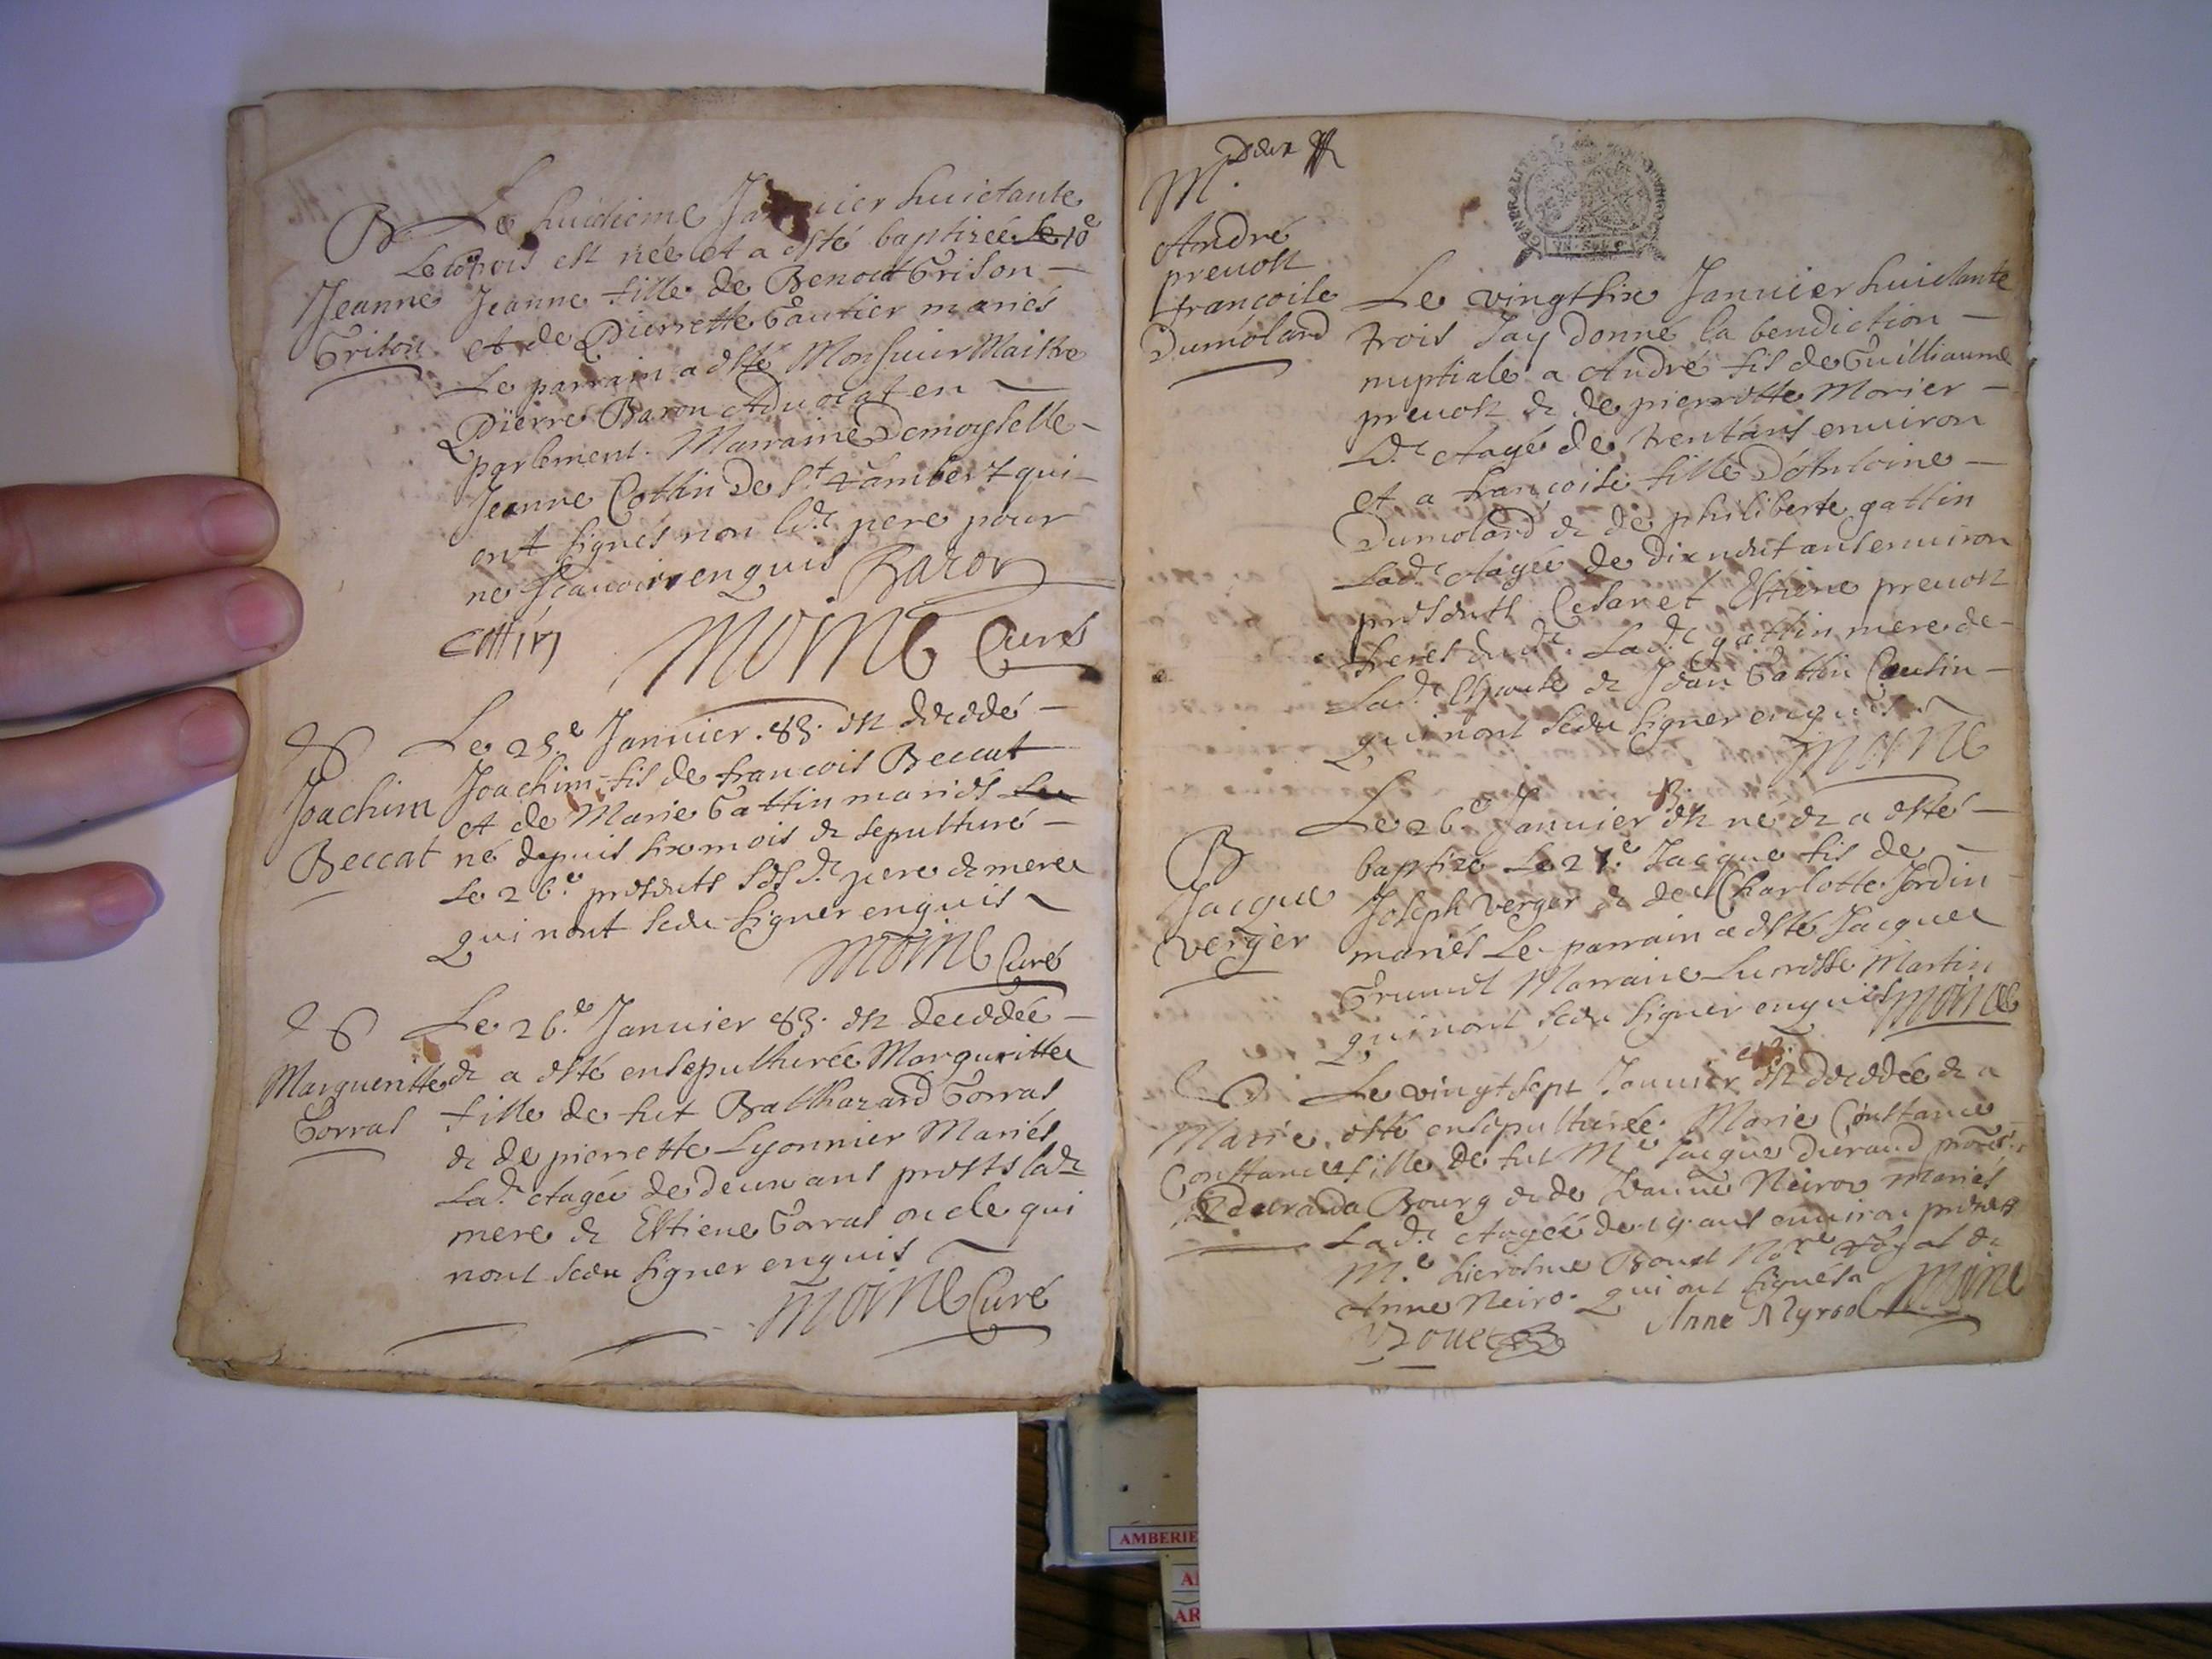 B
Le huictieme Janvier huictante
Le trois est née et a esté baptizée le 10e
Jeanne
Grison
Jeanne fille de Benoit Grison
et de Pierrette Gautier mariés
Le parrain a esté Monsieur Maistre
Pierre Baron Advocat en
parlement. Marraine Demoyselle
Jeanne Cottin De St Rambert qui
ont signés non led. pere pour
ne scavoir enquis Baron
cottin
Moine Curé
Joachim
Beccat
Le 25.e Janvier .83. est decedé
Joachim fils de francois Beccat
et de Marie Gattin mariés
né depuis six mois & sepulturé
Le 26.e presents sesd. pere & mere
qui nont sceu signer enquis
Moine Curé
Margueritte
Gorras
Le 26.e Janvier 83. est decedée
& a esté ensepulturée Margueritte
fille de fut Balthazard Gorras
& de pierrette Lyonnier Mariés
Lad. Aagée de deux ans presents lad.
mere & Estiene Gorras oncle qui
nont sceu signer enquis
Moine Curé
Deux
M.
André
prevost
francoise
Dumolard
GENERALITE
VN SOL
Le vingt six Janvier huictante
trois Jay donné la bendiction
nuptiale a André fils de Guilliaume
prevost & de pierrette Morier
Led. Aagé de trent ans environ
et a francoise fille D'Antoine
Dumolard & de philiberte gattin
Lad. Aagée de dixneuf ans environ
presents Cesar et Estiene prevost
freres dud. Lad. gattin mere de
Lad. Espouse & Jean Gattin Cousin
qui nont sceu signer enquis
Moine
B
Jacque
verger
Le 26.e Janvier 83. est né & a esté
baptizé Le 27.e Jacque fils de
Joseph verger & de Charlotte Jordin
mariés Le parrain a esté Jacques
Marraine Lucresse Martin
qui nont sceu signer enquis Moine
Marie
Constance
Durand
Le vingt sept Janvier 83. est decedée & a
esté ensepulturée Marie Constance
fille de fut Me Jacque Durand
a Bourg & de Jeanne Neiros mariés
Lad. Aagée de 19. ans environ presents
M.e hierosme Bouet Nore Royal &
Anne Neiro. qui ont signés Moine
Bouet
Anne Nyrod
AMBERIE
AR